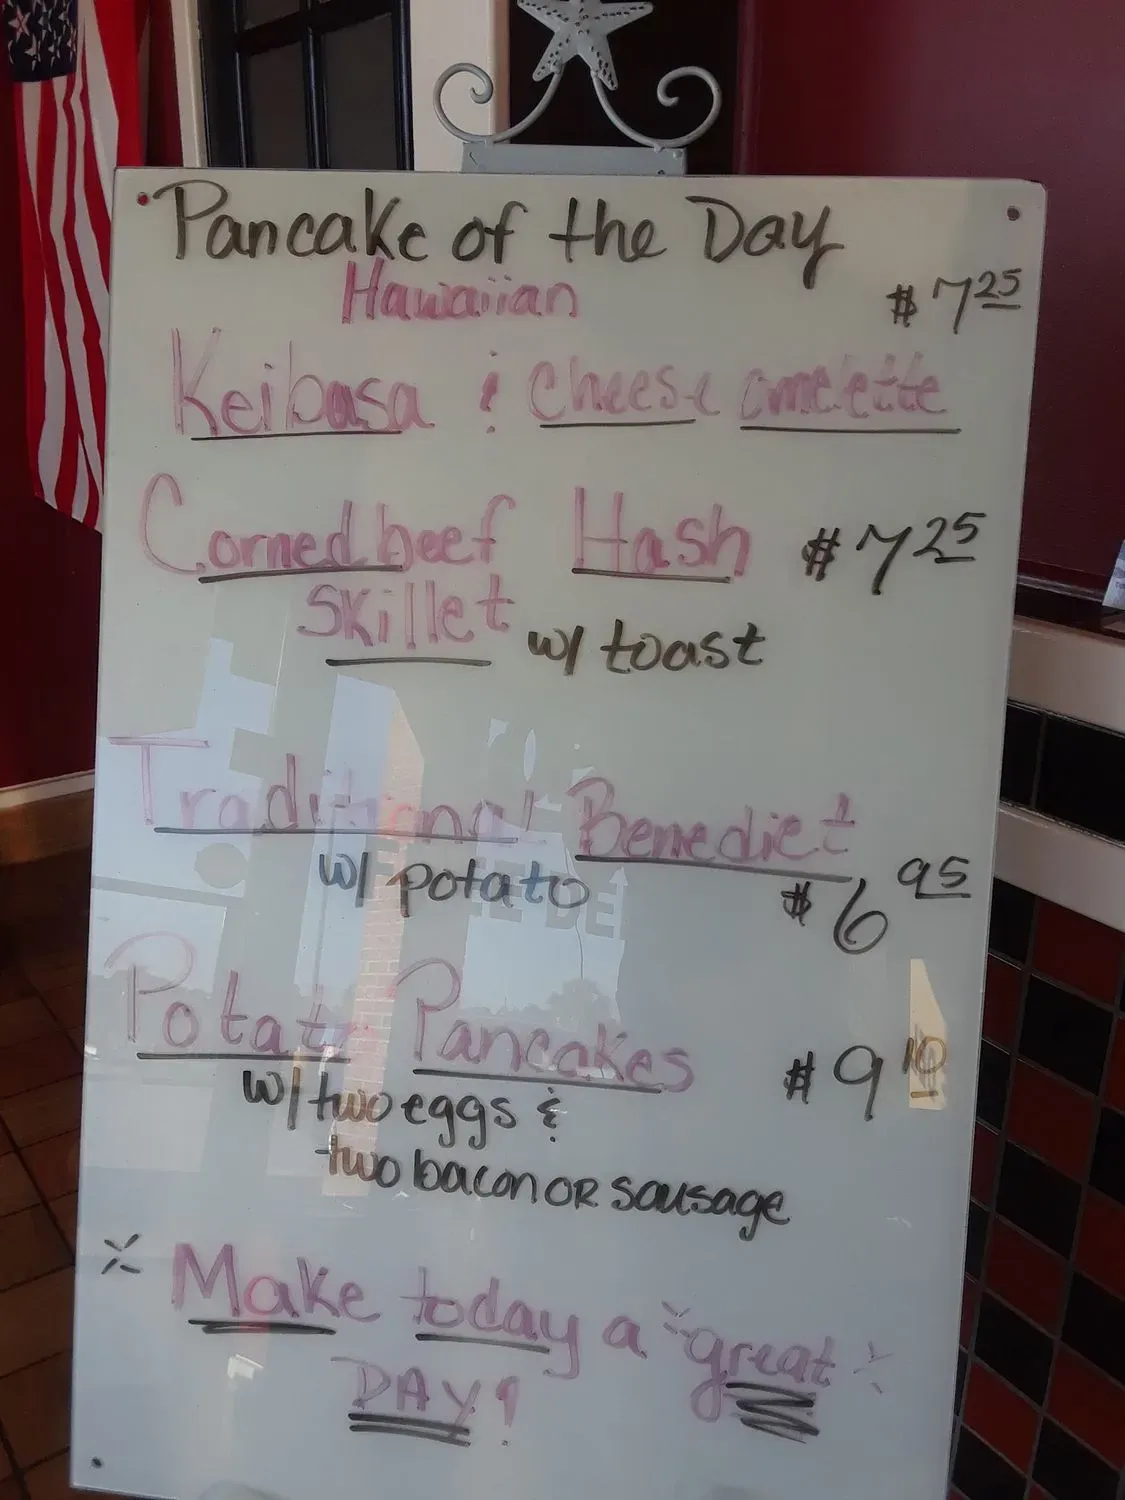 Pancake of the Day
Hawaiian $7 25
Keibasa & Cheese omelette
Corned beef Hash $7 25
Skillet w/ toast
Traditional Benedict
w/ potato $6 95
Potato Pancakes $9 10
w/ two eggs &
two bacon OR sausage
Make today a great
DAY!